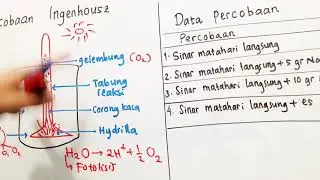 cobaan Ingenhousz
gelembung (O₂)
Tabung
reaksi
Corong kaca
Hydrilla
H₂O → 2H⁺ + ½ O₂
↳ Fotolisis
Data Percobaan
Percobaan
1. Sinar matahari langsung
2. Sinar matahari langsung + 5 gr Na
3. Sinar matahari langsung + 10 gr
4. Sinar matahari langsung + es